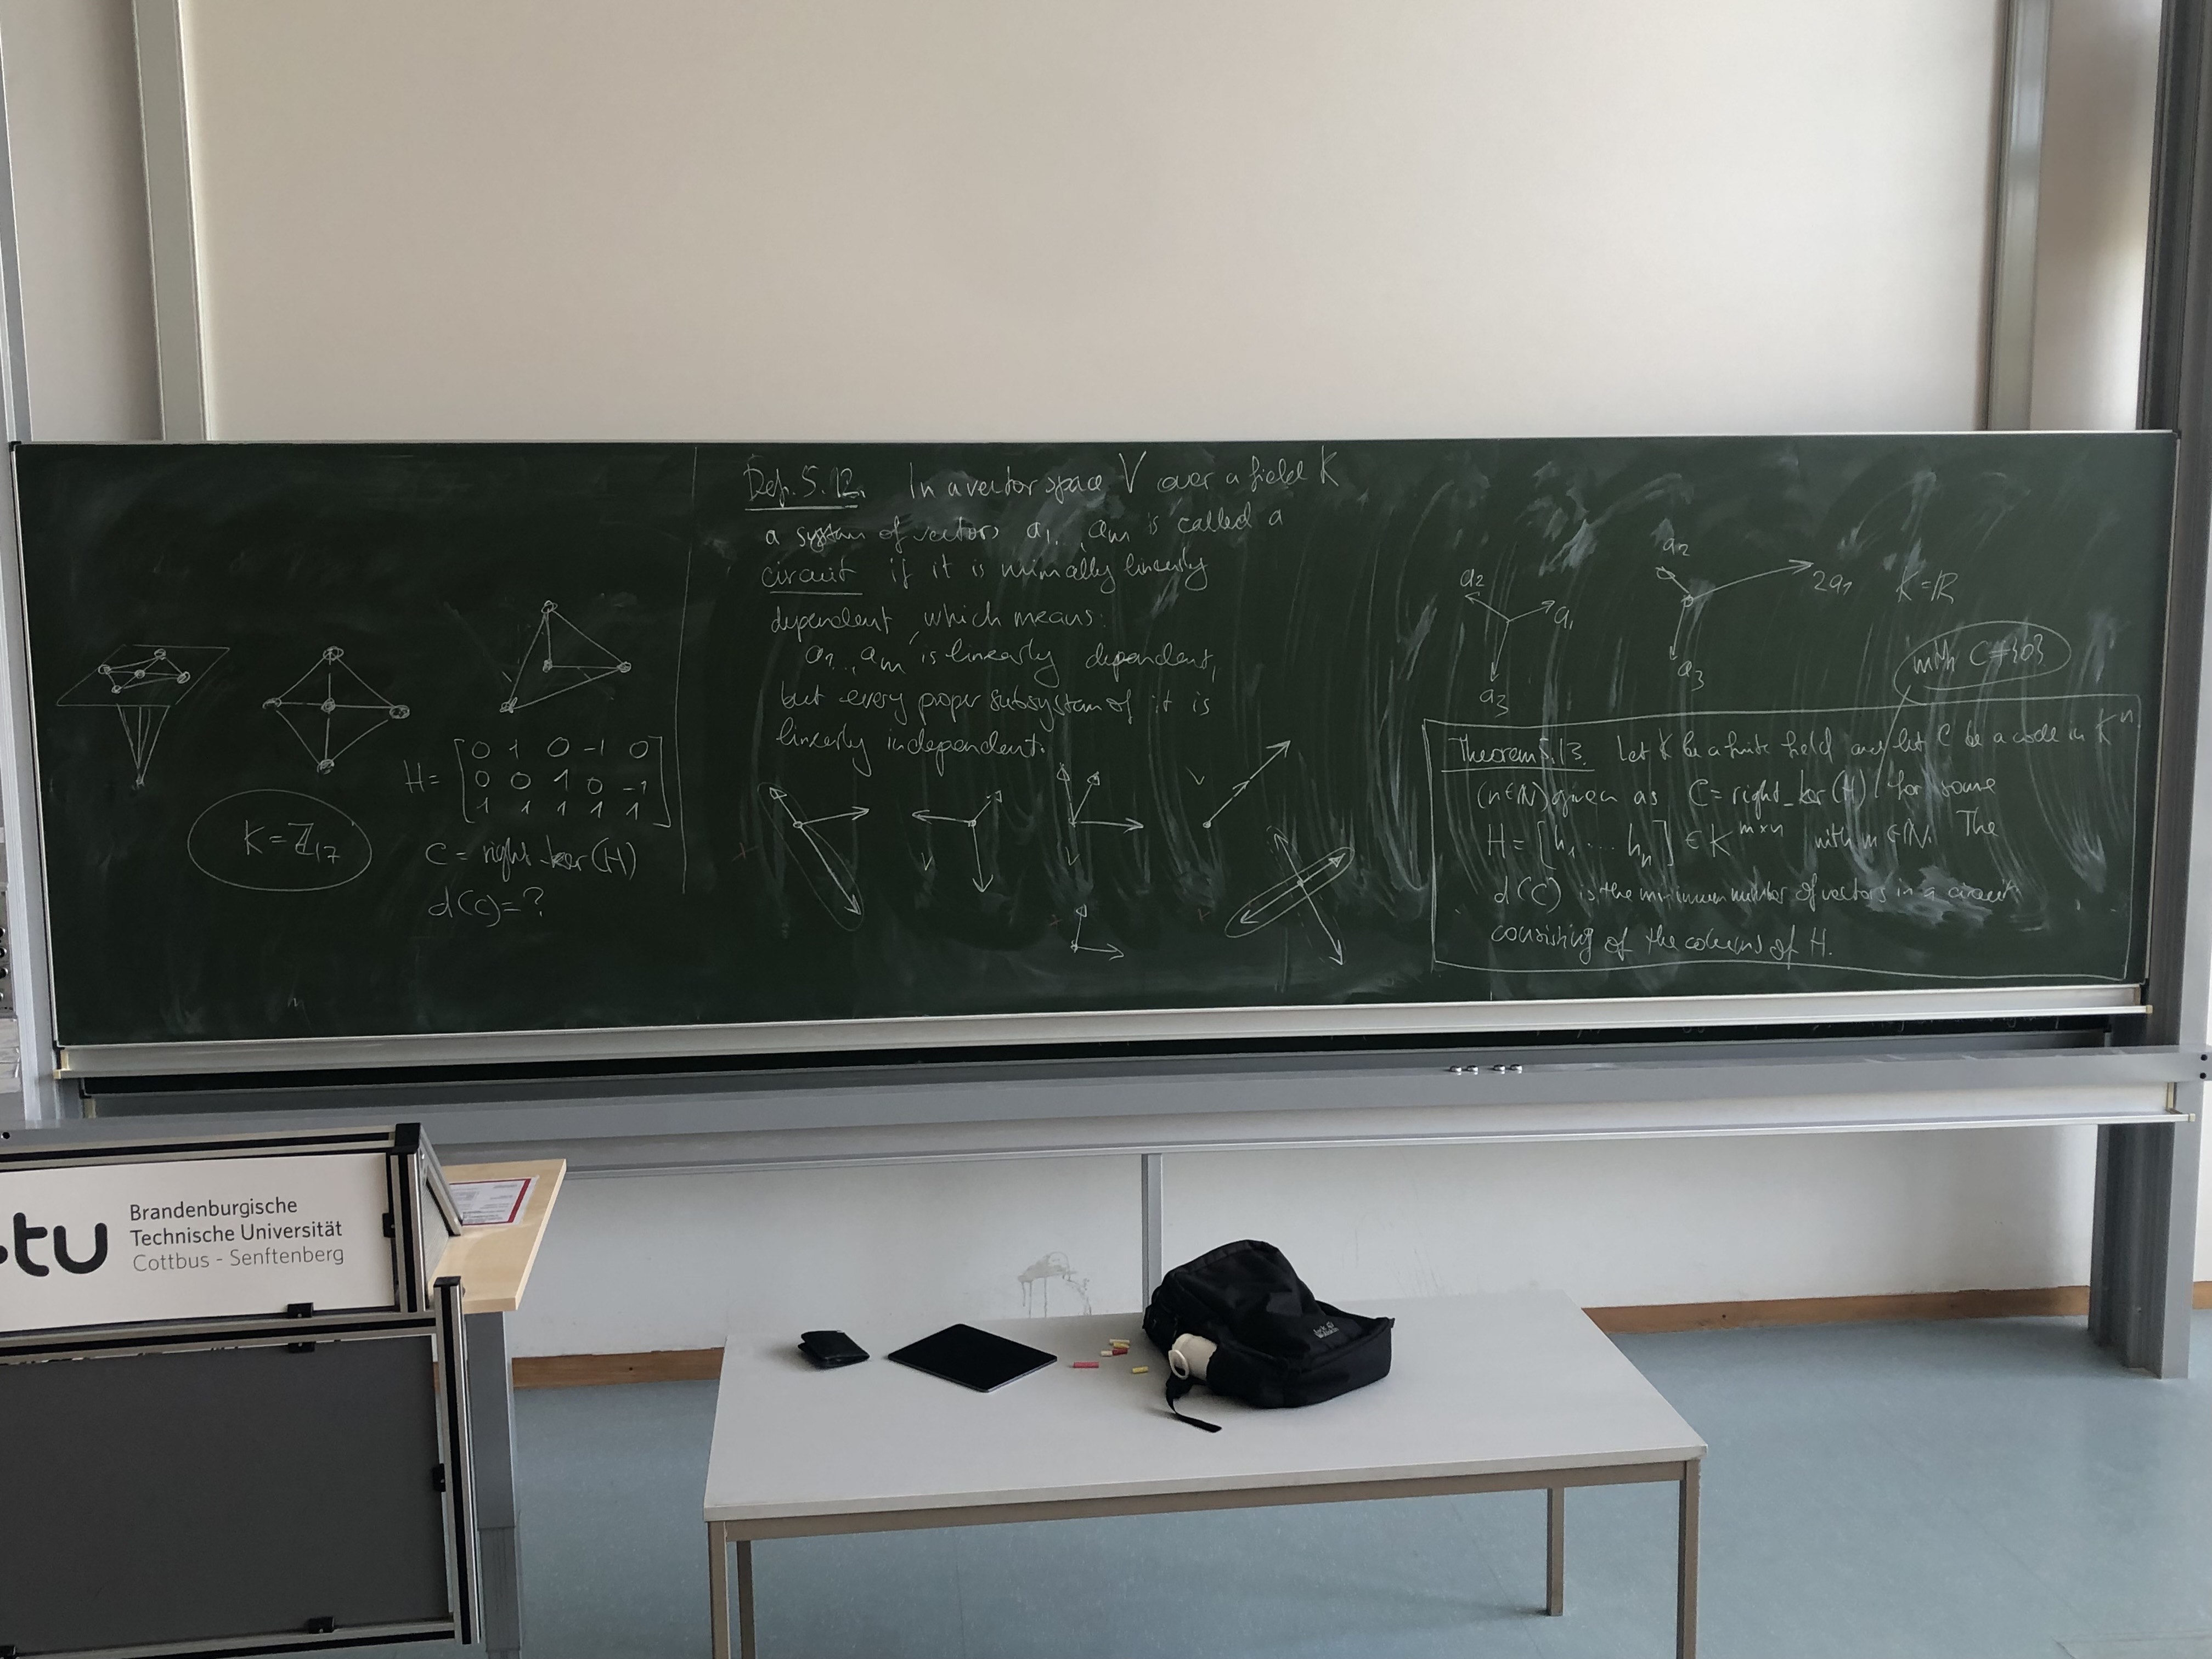 H = [ 0 1 0 -1 0
0 0 1 0 -1
1 1 1 1 1 ]
K = ℤ₁₇
C = right-ker(H)
d(C) = ?
Def. 5.12. In a vector space V over a field K
a system of vectors a₁..., aₘ is called a
circuit if it is minimally linearly
dependent, which means:
a₁..., aₘ is linearly dependent,
but every proper subsystem of it is
linearly independent.
a₂
a₁
a₃
a₂
2a₁
a₃
K = ℝ
with C ≠ {0}
Theorem 5.13. Let K be a finite field and let C be a code in Kⁿ
(n∈ℕ) given as C = right-ker(H) for some
H = [h₁ ... hₙ] ∈ K^{m×n} with m ∈ ℕ. The
d(C) is the minimum number of vectors in a circuit
consisting of the columns of H.
tu
Brandenburgische
Technische Universität
Cottbus - Senftenberg
Jack
Wolfskin